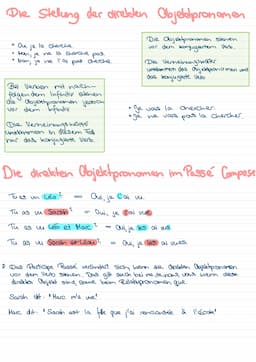 Die Stellung der direkten Objektpronomen
• Oui, je la cherche
• Non, je ne la cherche pas
• Non, je ne l'ai pas cherché
Die Objektpronomen stehen
vor dem konjugierten Verb.
Die Verneinungswörter
umklammern das Objektpronomen und
das konjugierte Verb.
Bei Verben mit nach-
folgendem Infinitiv stehen
die Objektpronomen jedoch
vor dem Infinitiv
Die Verneinungswörter
umklammern in diesem Fall
nur das konjugierte Verb.
• Je vais la chercher.
• Je ne vais pas la chercher.
Die direkten Objektpronomen im Passé Composé
Tu as vu Léo? = Oui, je l'ai vu.
Tu as vu Sarah? = Oui, je l'ai vue.
Tu as vu Léo et Marc? = Oui, je les ai vus
Tu as vu Sarah et Léa? = Oui, je les ai vues
Das Participe Passé verändert sich, wenn die direkten Objektpronomen
vor dem Verb stehen. Das gilt auch bei me, te, nous, vous wenn diese
direktes Objekt sind, sowie beim Relativpronomen que.
Sarah dit: "Marc m'a vue"
Marc dit: "Sarah est la fille que j'ai rencontrée à l'école"